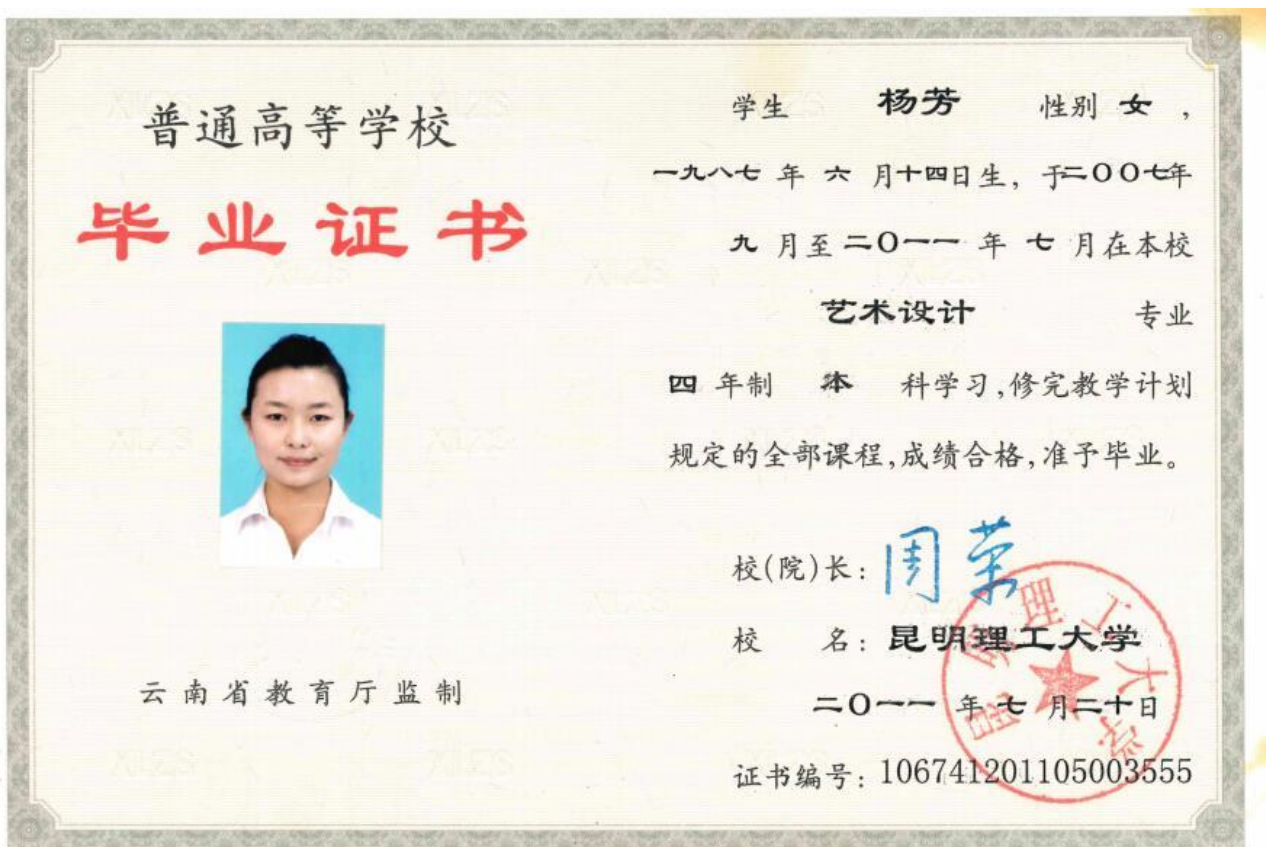 普通高等学校
毕业证书
云南省教育厅监制
学生 杨芳 性别 女，
一九八七 年 六 月十四日生，于二〇〇七年
九 月至 二〇一一 年 七 月在本校
艺术设计 专业
四 年制 本 科学习，修完教学计划
规定的全部课程，成绩合格，准予毕业。
校(院)长：周荣
校 名：昆明理工大学
二〇一一 年 七 月二十日
证书编号：106741201105003555
昆明理工大学